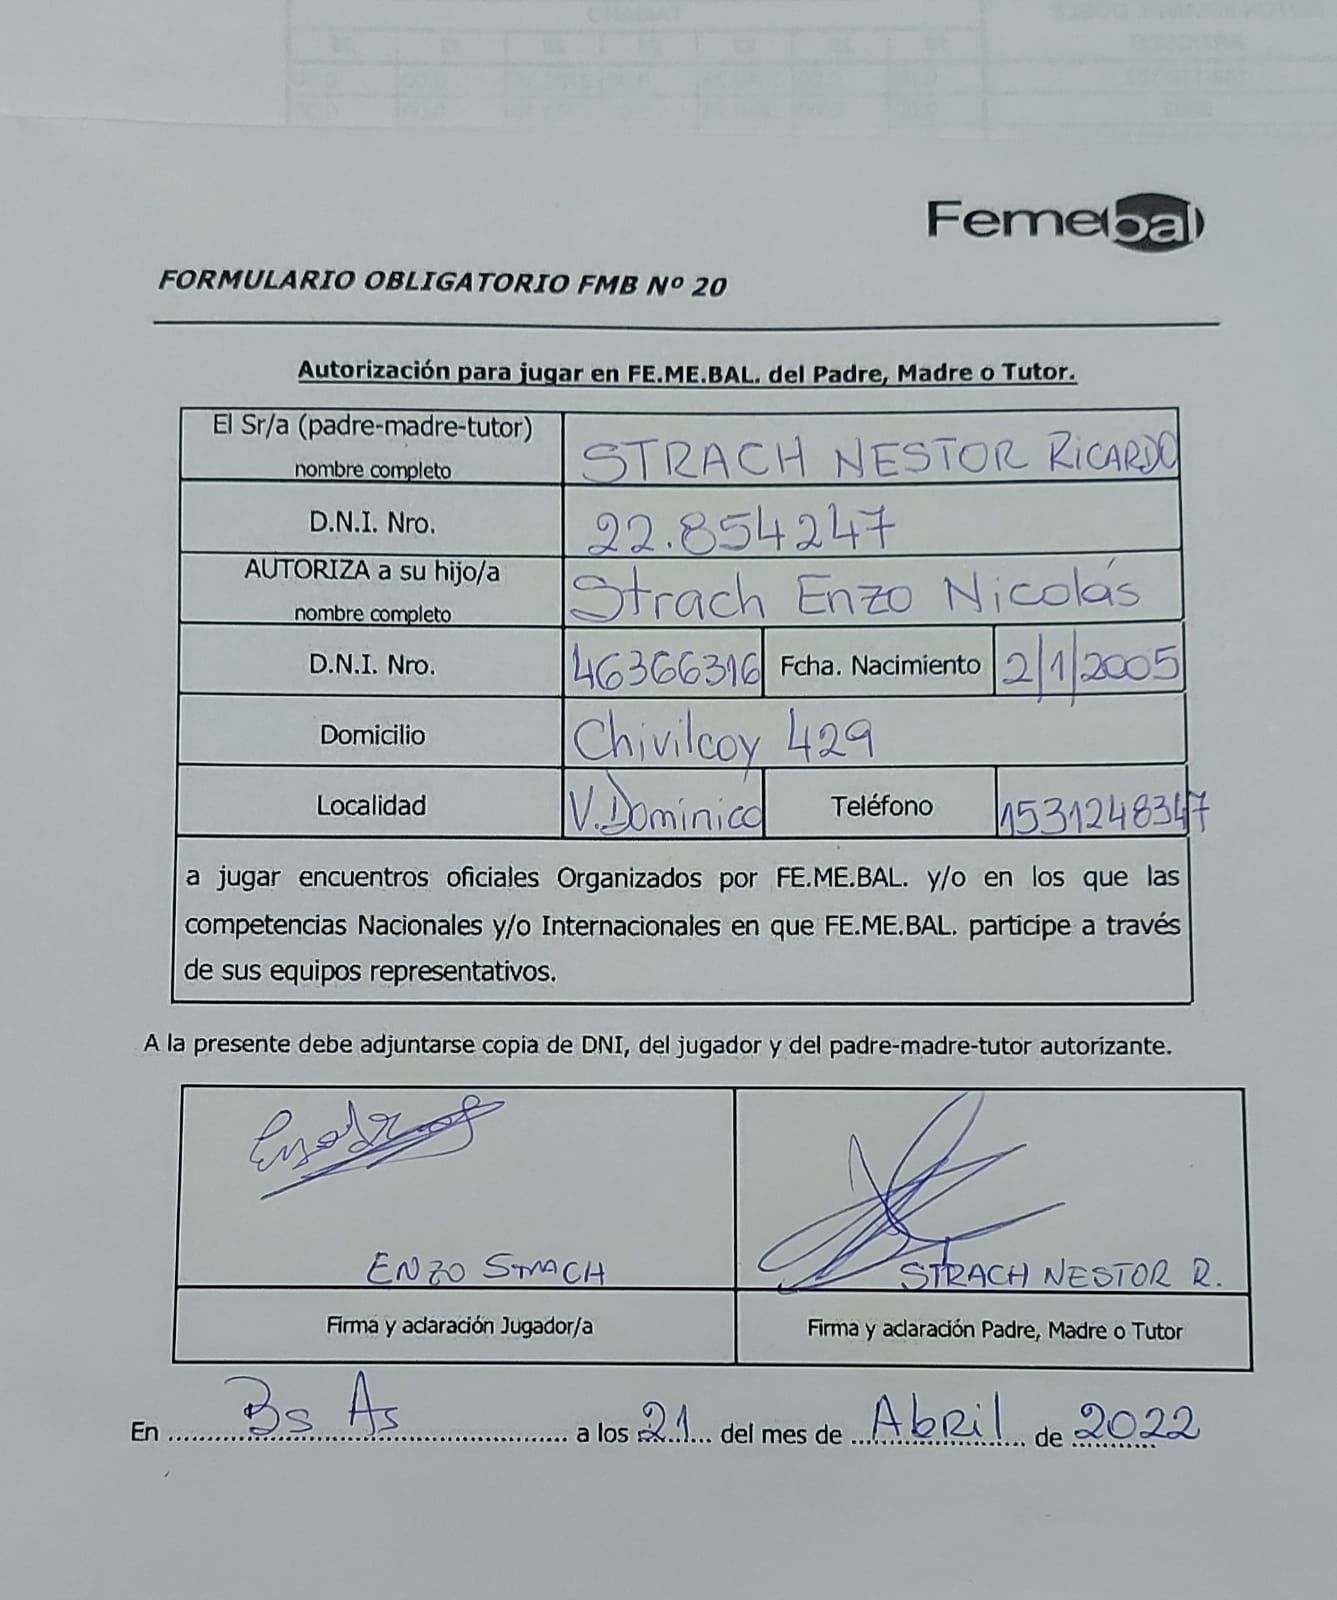 Femebal
FORMULARIO OBLIGATORIO FMB Nº 20
Autorización para jugar en FE.ME.BAL. del Padre, Madre o Tutor.
El Sr/a (padre-madre-tutor)
nombre completo
STRACH NESTOR RiCARDO
D.N.I. Nro.
22.854247
AUTORIZA a su hijo/a
nombre completo
Strach Enzo Nicolás
D.N.I. Nro.
46366316
Fcha. Nacimiento
2/1/2005
Domicilio
Chivilcoy 429
Localidad
V.Dominico
Teléfono
1531248347
a jugar encuentros oficiales Organizados por FE.ME.BAL. y/o en los que las
competencias Nacionales y/o Internacionales en que FE.ME.BAL. participe a través
de sus equipos representativos.
A la presente debe adjuntarse copia de DNI, del jugador y del padre-madre-tutor autorizante.
ENZO STRACH
STRACH NESTOR R.
Firma y aclaración Jugador/a
Firma y aclaración Padre, Madre o Tutor
En Bs As a los 21 del mes de Abril de 2022